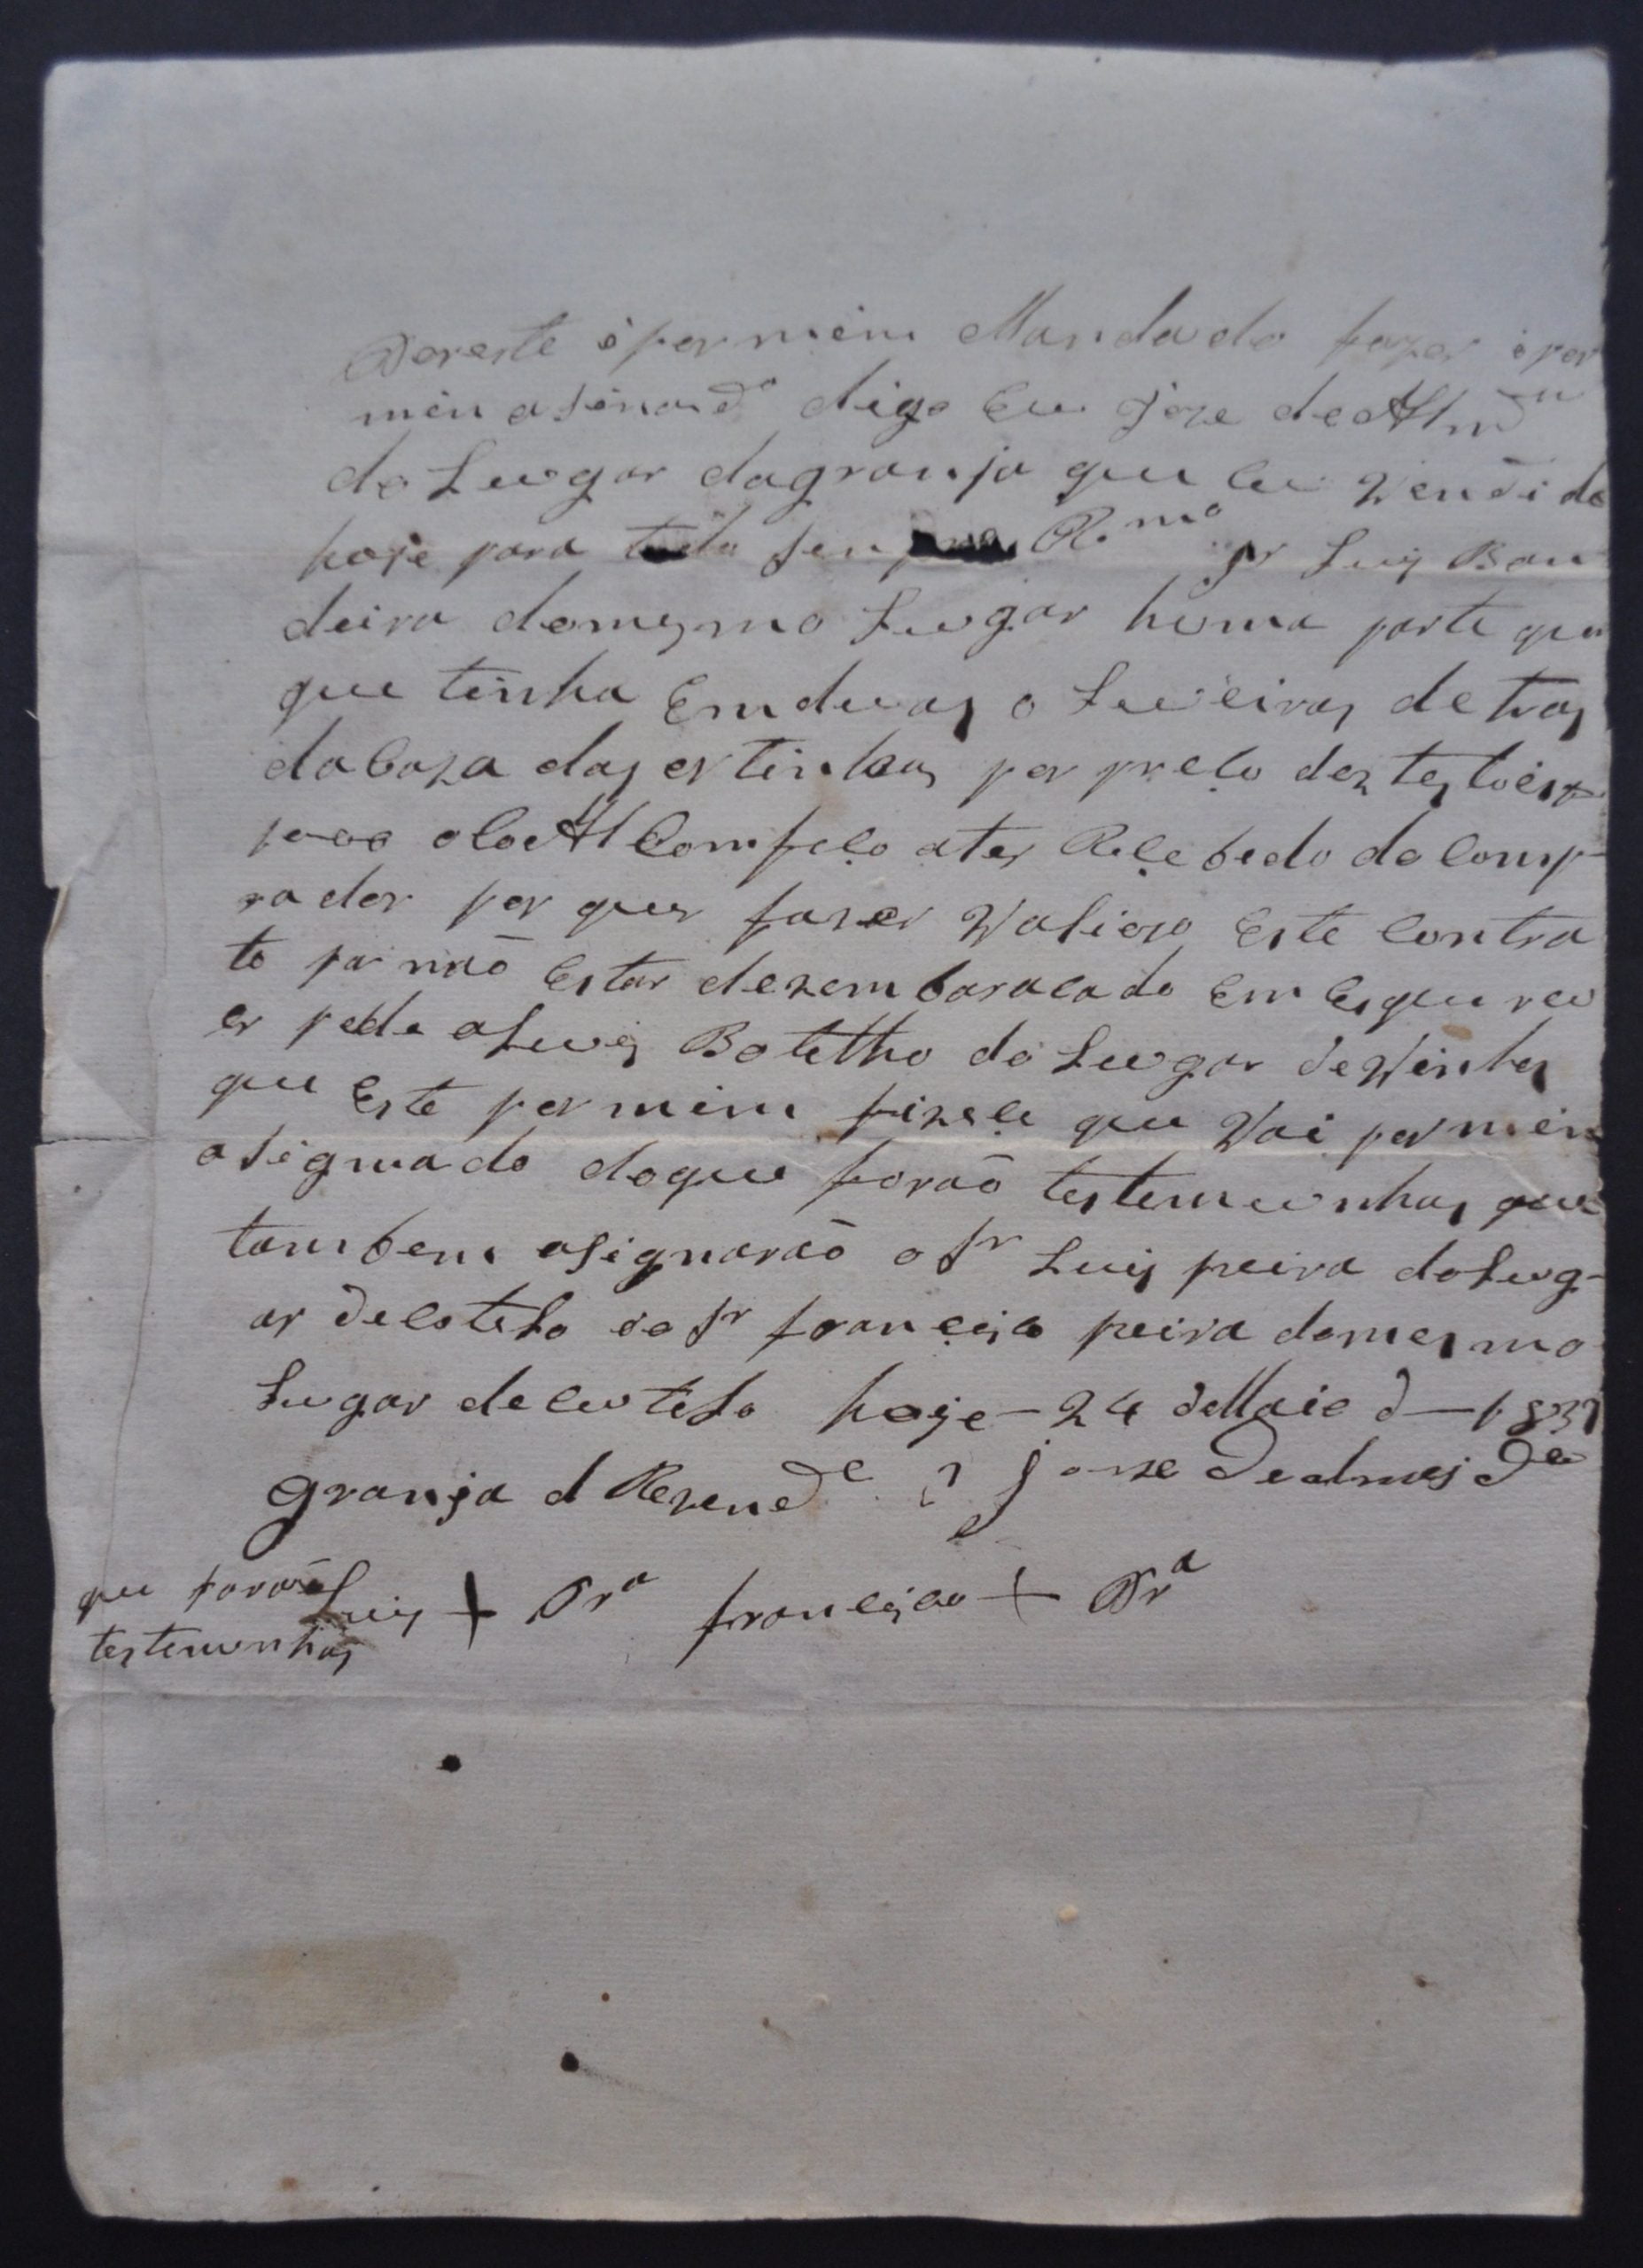 Por este è por mim Mandado fazer è por
mim asinadº digo Eu Joze de Almdª
do Lugar dagranja que Eu Vendi de
hoje para todo sen R.mo Sr Luis Ban
deira domesmo Lugar huma parte que
que tinha Emduas oLiveiras detras
daCaza das ortinhas por preço dez testois
Comfeço ater Reçebido do Comp-
rador por quer fazer Valiozo Este Contra
to por não Estar dezembaraCado Em Esqurev
er pede aLuis Botelho do Lugar deVinhos
que Este por mim fizeçe que Vai por mim
asignado doque forão testemunhas que
tambem asignarão o Sr Luis preira doLug-
ar deCotelo eo Sr françisco preira domesmo
Lugar deCutelo hoje-24 deMaio d— 1837
Granja d Rezendᵉ Joze Dealmejdª
que forão
Luis + Prª françisco + Prª
testemunhas